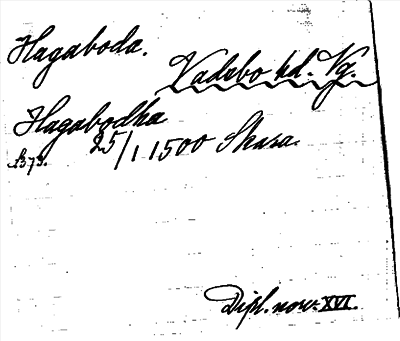 Hagaboda.
Vadsbo hd. Vg.
Hagabodha
25/1 1500 Skara.
B 73.
Dipl. norv. XVI.